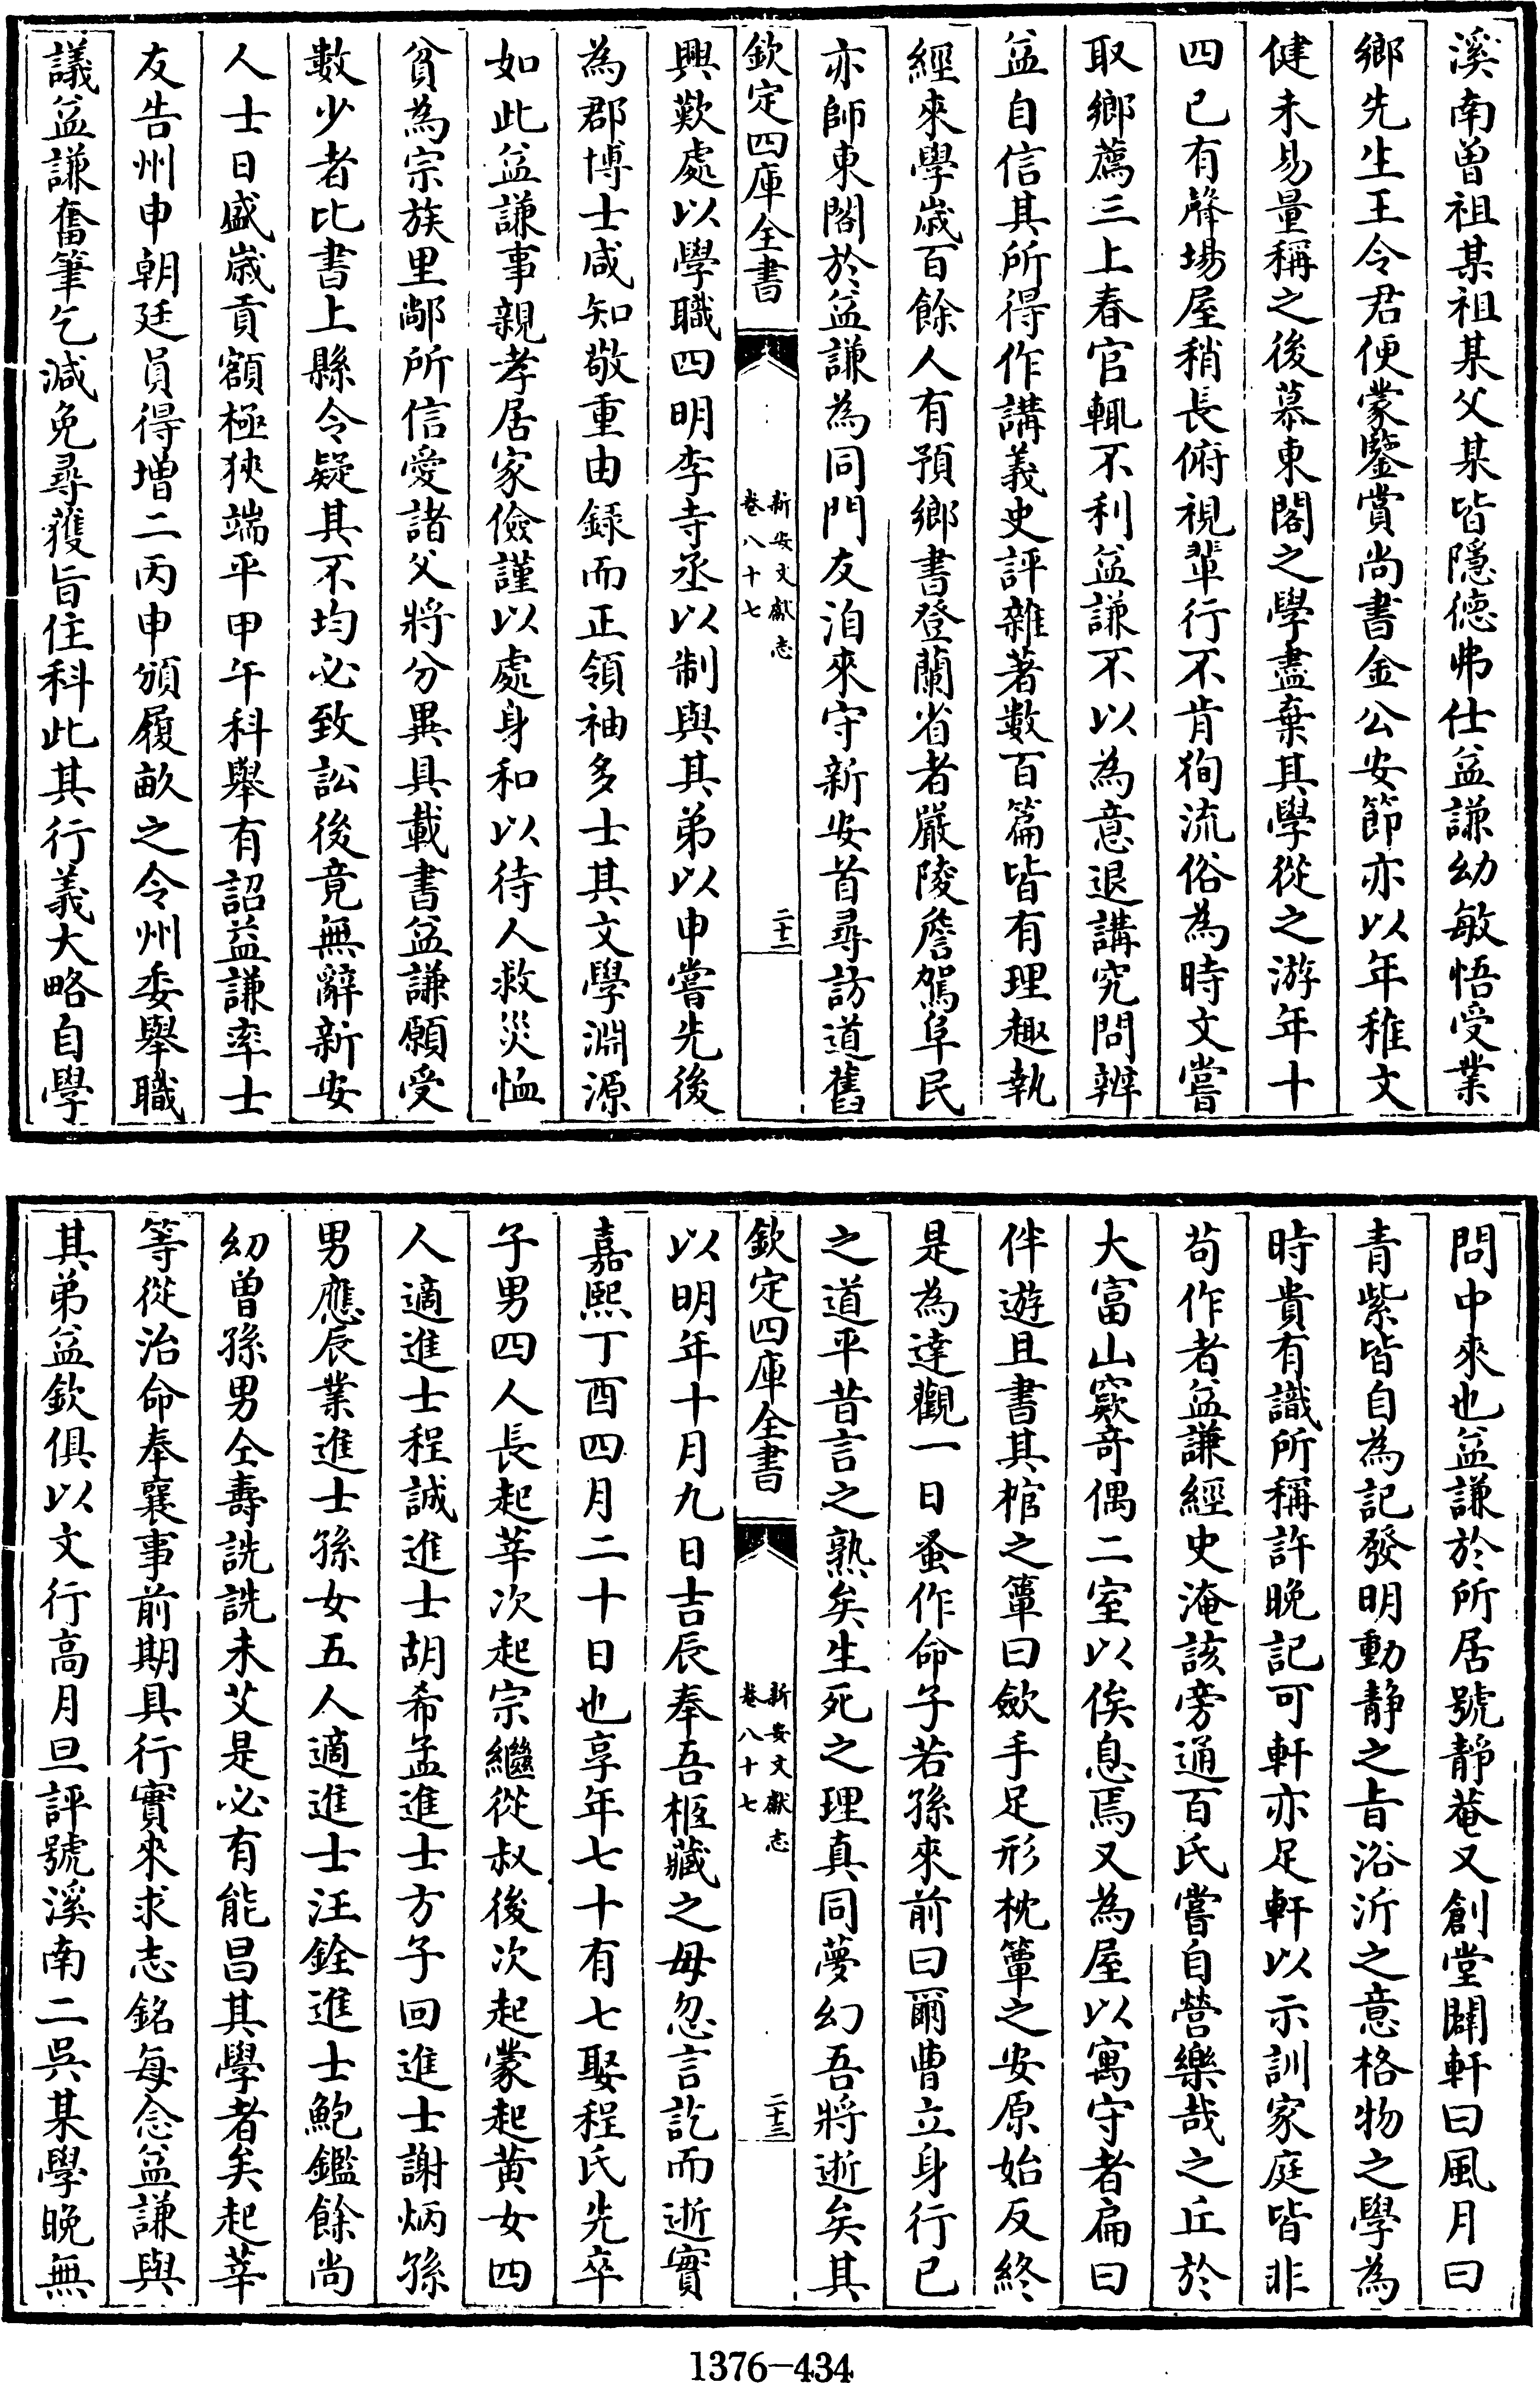 溪南曽祖某祖某父某皆隱徳弗仕益謙幼敏悟受業
鄉先生王令君便蒙鑒賞尚書金公安節亦以年稚文
健未易量稱之後慕東閣之學盡棄其學從之游年十
四已有聲場屋稍長俯視輩行不肯狥流俗為時文嘗
取鄉薦三上春官輒不利益謙不以為意退講究問辨
益自信其所得作講義史評雜著數百篇皆有理趣執
經來學歲百餘人有預鄉書登蘭省者嚴陵詹駕阜民
亦師東閣於益謙為同門友洎來守新安首尋訪道舊
欽定四庫全書
新安文獻志
卷八十七
二十二
興歎處以學職四明李寺丞以制與其弟以申嘗先後
為郡博士咸知敬重由録而正領袖多士其文學淵源
如此益謙事親孝居家儉謹以處身和以待人救災恤
貧為宗族里鄰所信愛諸父將分異具載書益謙願受
數少者比書上縣令疑其不均必致訟後竟無辭新安
人士日盛歲貢額極狹端平甲午科舉有詔益謙率士
友告州申朝廷員得增二丙申頒履畝之令州委舉職
議益謙奮筆乞減免尋獲旨住科此其行義大略自學
問中來也益謙於所居號靜菴又創堂闢軒曰風月曰
青紫皆自為記發明動靜之旨浴沂之意格物之學為
時貴有識所稱許晚記可軒亦足軒以示訓家庭皆非
苟作者益謙經史淹該旁通百氏嘗自營樂哉之丘於
大富山窾竒偶二室以俟息焉又為屋以寓守者扁曰
伴遊且書其棺之簞曰歛手足形枕簟之安原始反終
是為達觀一日蚤作命子若孫來前曰爾曹立身行已
之道平昔言之熟矣生死之理真同夢幻吾將逝矣其
欽定四庫全書
新安文獻志
卷八十七
二十三
以明年十月九日吉辰奉吾柩藏之毋忽言訖而逝實
嘉熙丁酉四月二十日也享年七十有七娶程氏先卒
子男四人長起莘次起宗繼從叔後次起蒙起黄女四
人適進士程誠進士胡希孟進士方子回進士謝炳孫
男應辰業進士孫女五人適進士汪銓進士鮑鑑餘尚
幼曽孫男仝壽詵詵未艾是必有能昌其學者矣起莘
等從治命奉襄事前期具行實來求志銘每念益謙與
其弟益欽俱以文行高月旦評號溪南二吳某學晚無
1376-434